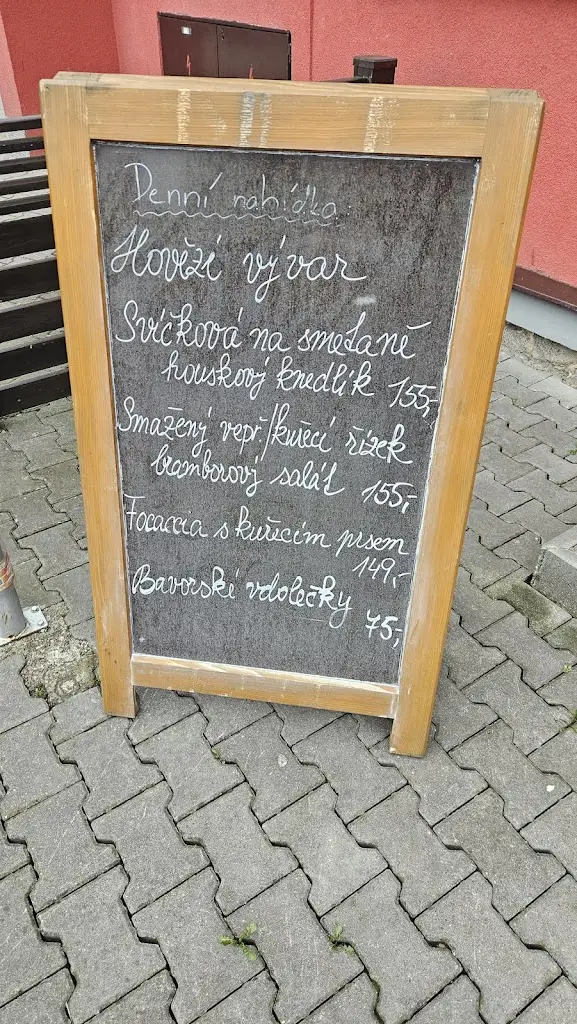 Denní nabídka:
Hovězí vývar
Svíčková na smetaně
houskový knedlík 155,-
Smažený vepř./kuřecí řízek
bramborový salát 155,-
Focaccia s kuřecím prsem
149,-
Bavorské vdolečky
75,-